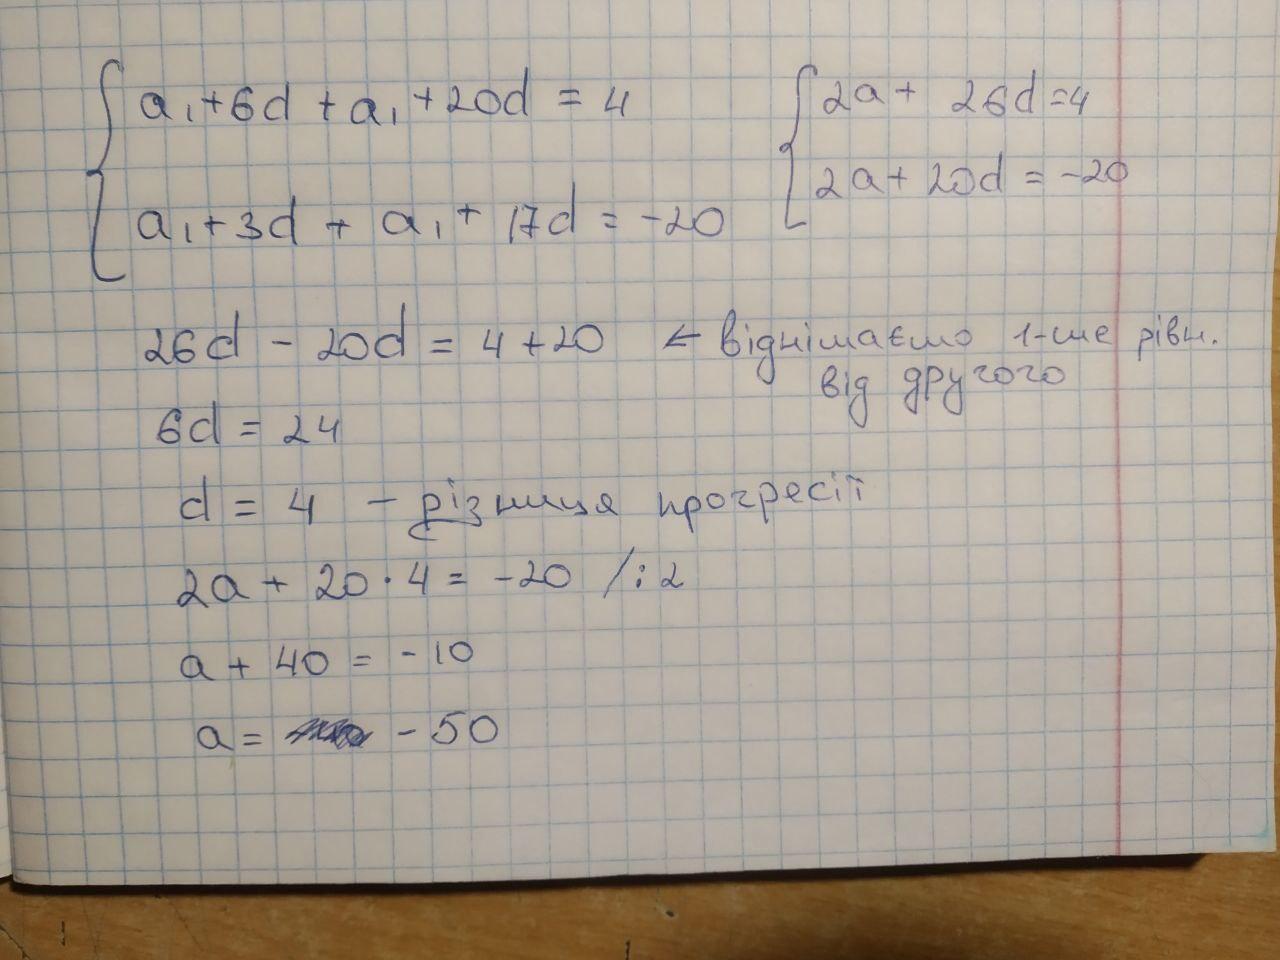 a₁+6d +a₁+20d = 4
a₁+3d + a₁+ 17d = -20
2a+ 26d=4
2a+20d = -20
26d - 20d = 4+20 ← віднімаємо 1-ше рівн.
від другого
6d = 24
d = 4 - різниця прогресії
2a + 20·4 = -20 /:2
a + 40 = -10
a = -50